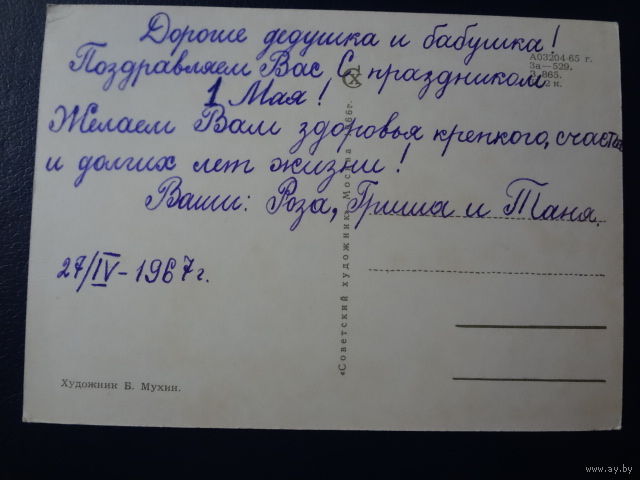 Дорогие дедушка и бабушка!
Поздравляем Вас С праздником
1 Мая!
Желаем Вам здоровья крепкого, счастья
и долгих лет жизни!
Ваши: Роза, Гриша и Таня.
27/IV-1967 г.
А03204 65 г.
За—529.
2 к.
«Советский художник» Москва
Художник Б. Мухин.
www.ay.by